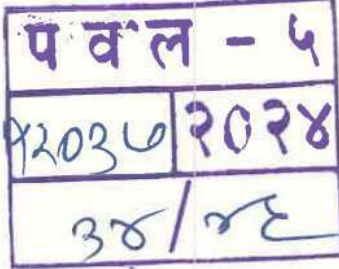 पवल - ५
१२०३७ २०२४
३४/४६